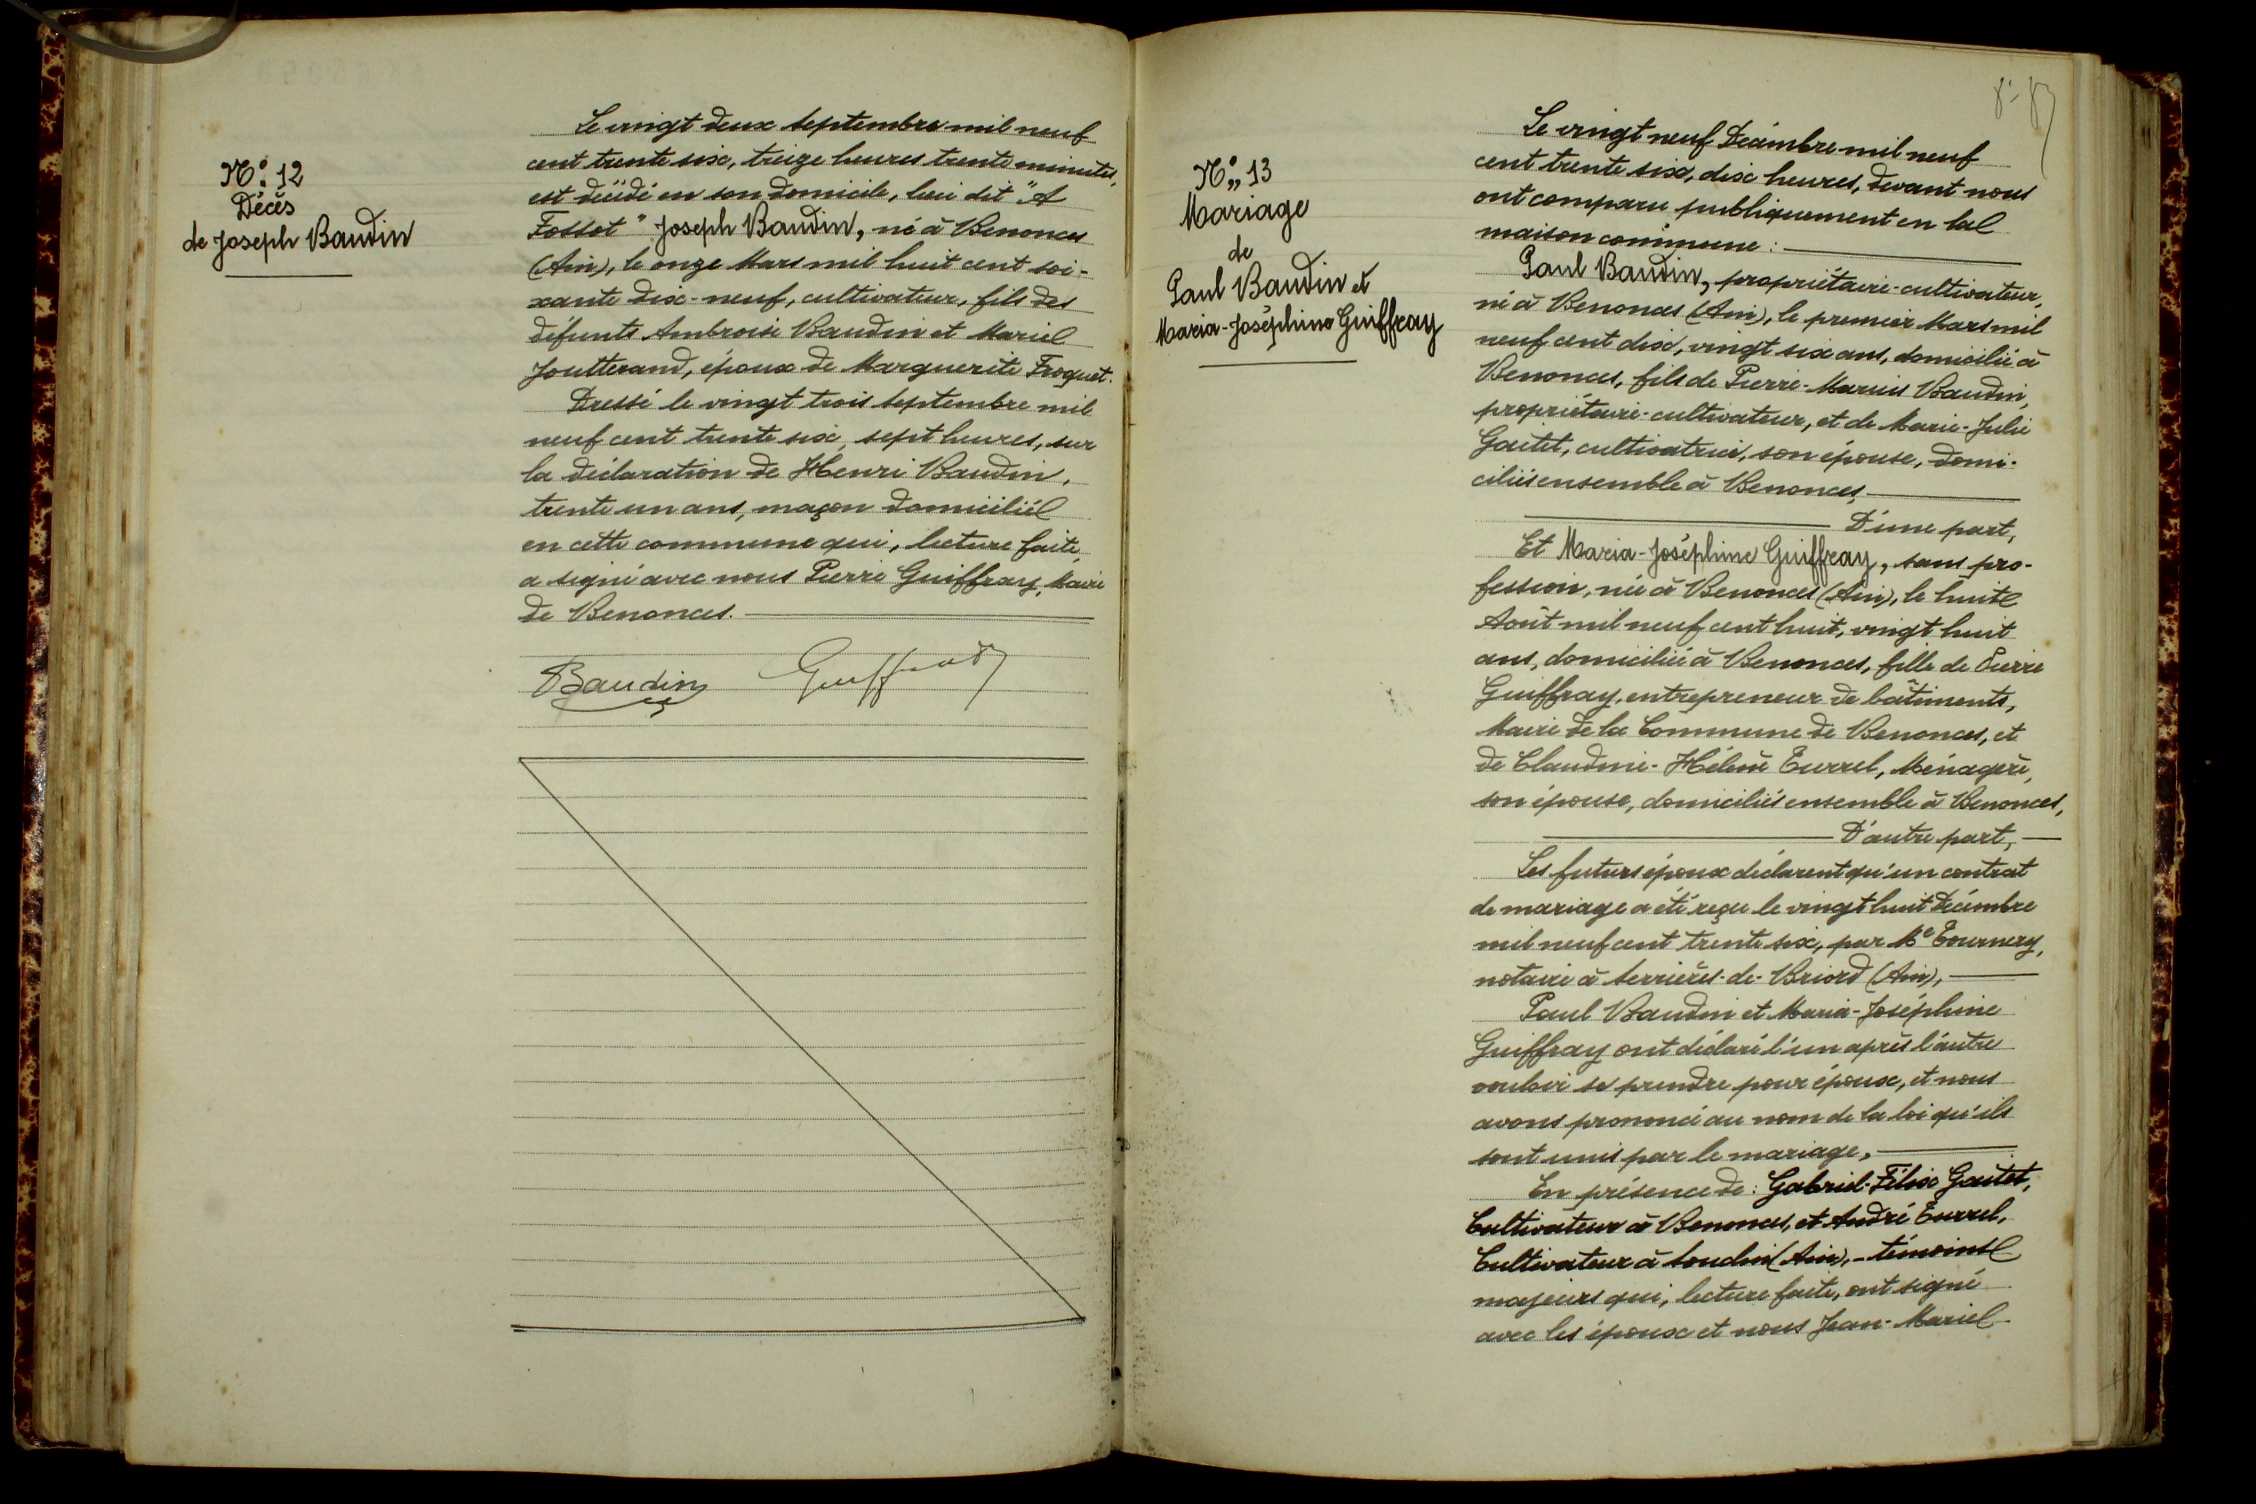 N°: 12
Décès
de Joseph Baudin
Le vingt deux septembre mil neuf
cent trente six, treize heures trente minutes,
est décédé en son domicile, lieu dit "A
Fossot" Joseph Baudin, né à Benonces
(Ain), le onze Mars mil huit cent soi-
xante dix-neuf, cultivateur, fils des
défunts Ambroise Baudin et Marie
Joutterand, époux de Marguerite Froquet.
Dressé le vingt trois septembre mil
neuf cent trente six, sept heures, sur
la déclaration de Henri Baudin,
trente un ans, maçon domicilié
en cette commune qui, lecture faite,
a signé avec nous Pierre Guiffray, Maire
de Benonces.
Baudin Guiffray
N° 13
Mariage
de
Paul Baudin et
Maria-Joséphine Guiffray
Le vingt neuf Décembre mil neuf
cent trente six, dix heures, devant nous
ont comparu publiquement en la
maison commune :
Paul Baudin, propriétaire-cultivateur,
né à Benonces (Ain), le premier Mars mil
neuf cent dix, vingt six ans, domicilié à
Benonces, fils de Pierre-Marius Baudin,
propriétaire-cultivateur, et de Marie-Julie
Goutet, cultivatrice, son épouse, domi-
ciliés ensemble à Benonces,
D'une part,
Et Maria-Joséphine Guiffray, sans pro-
fession, née à Benonces (Ain), le huit
Août mil neuf cent huit, vingt huit
ans, domiciliée à Benonces, fille de Pierre
Guiffray, entrepreneur de bâtiments,
Maire de la Commune de Benonces, et
de Claudine-Hélène Currel, Ménagère,
son épouse, domiciliés ensemble à Benonces,
D'autre part,
Les futurs époux déclarent qu'un contrat
de mariage a été reçu le vingt huit Décembre
mil neuf cent trente six, par Me Tournery,
notaire à Serrières-de-Briord (Ain),
Paul Baudin et Maria-Joséphine
Guiffray ont déclaré l'un après l'autre
vouloir se prendre pour époux, et nous
avons prononcé au nom de la loi qu'ils
sont unis par le mariage,
En présence de : Gabriel-Félix Goutet,
Cultivateur à Benonces, et André Currel,
Cultivateur à Soudon (Ain), - témoins
majeurs qui, lecture faite, ont signé
avec les époux et nous Jean-Marie